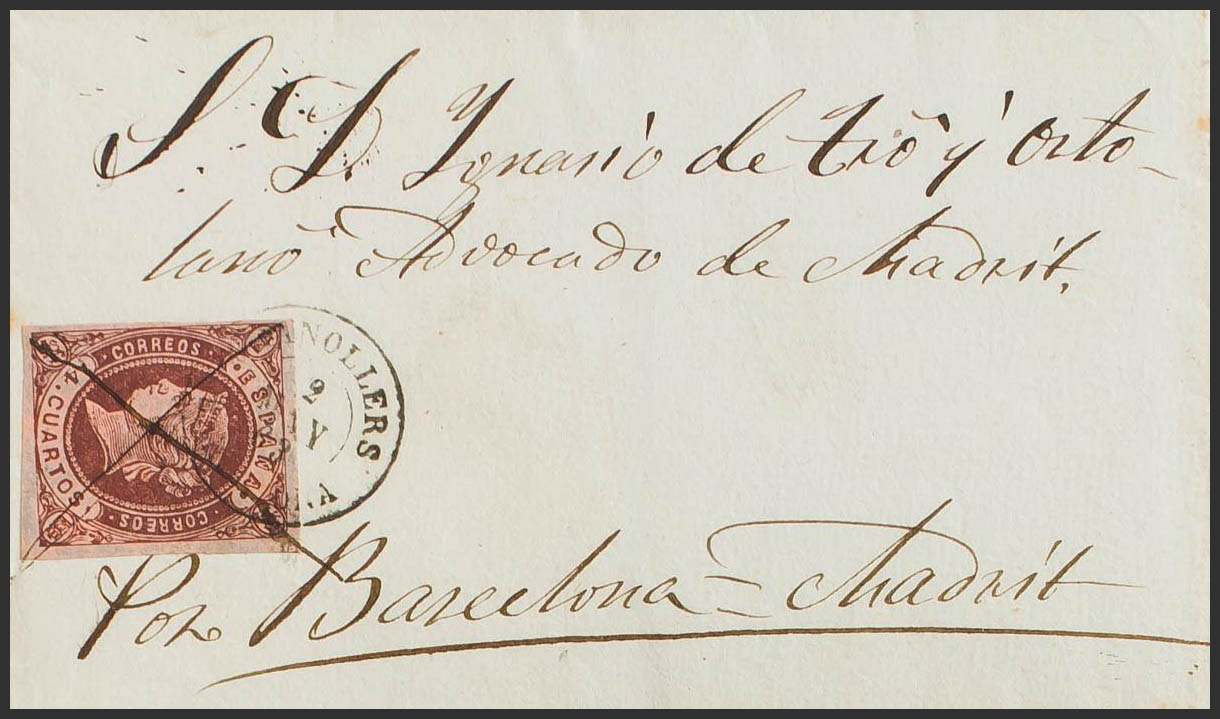 S. D. Ignasio de Tró y Orto-
lanó Advocado de Madrit.
CORREOS
ESPAÑA
4 CUARTOS
CORREOS
ANOLLERS
2
Y
Por Barcelona = Madrit